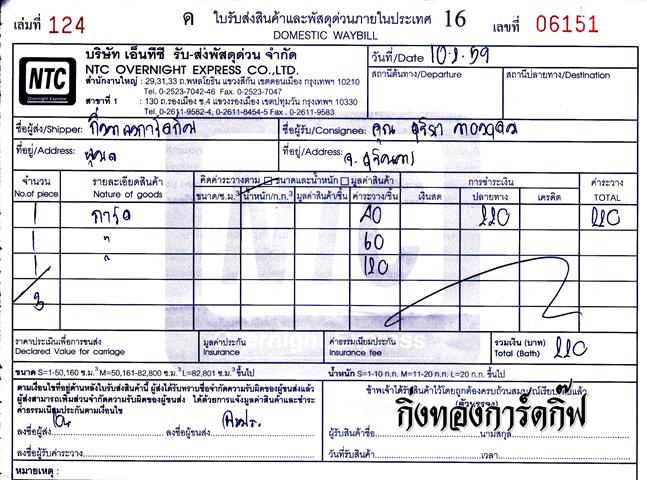 เล่มที่ 124 ค ใบรับส่งสินค้าและพัสดุด่วนภายในประเทศ 16 เลขที่ 06151
DOMESTIC WAYBILL
NTC
Overnight Express
บริษัท เอ็นทีซี รับ-ส่งพัสดุด่วน จำกัด
NTC OVERNIGHT EXPRESS CO.,LTD.
สำนักงานใหญ่ : 29,31,33 ถ.พหลโยธิน แขวงสีกัน เขตดอนเมือง กรุงเทพฯ 10210
Tel. 0-2523-7042-46 Fax. 0-2523-7047
สาขาที่ 1 : 130 ถ.รองเมือง ซ.4 แขวงรองเมือง เขตปทุมวัน กรุงเทพฯ 10330
Tel. 0-2611-9582-4, 0-2611-8454-5 Fax. 0-2611-9583
วันที่/Date
สถานีต้นทาง/Departure สถานีปลายทาง/Destination
ชื่อผู้ส่ง/Shipper: ชื่อผู้รับ/Consignee: คุณ
ที่อยู่/Address: ที่อยู่/Address:
จำนวน รายละเอียดสินค้า คิดค่าระวางตาม ขนาดและน้ำหนัก มูลค่าสินค้า การชำระเงิน ค่าระวาง
No.of piece Nature of goods ขนาด/ซ.ม.³ น้ำหนัก/ก.ก. มูลค่าสินค้า/ชิ้น ค่าระวาง/ชิ้น เงินสด ปลายทาง เครดิต TOTAL
1 การ์ด 40 220 220
1 " 60
1 " 120
3
ราคาประเมินเพื่อการขนส่ง มูลค่าประกัน ค่าธรรมเนียมประกัน รวมเงิน (บาท)
Declared Value for carriage Insurance Insurance fee Total (Bath) 220
ขนาด S=1-50,160 ซ.ม.³ M=50,161-82,800 ซ.ม.³ L=82,801 ซ.ม.³ขึ้นไป น้ำหนัก S=1-10 ก.ก. M=11-20 ก.ก. L=20 ก.ก. ขึ้นไป
ตามเงื่อนไขที่อยู่ด้านหลังใบรับส่งสินค้านี้ ผู้ส่งได้รับทราบข้อจำกัดความรับผิดของผู้ขนส่งแล้ว
ผู้ส่งสามารถเพิ่มส่วนจำกัดความรับผิดของผู้ขนส่ง ได้ด้วยการแจ้งมูลค่าสินค้าและชำระ
ค่าธรรมเนียมประกันตามเงื่อนไข
ข้าพเจ้าได้รับสินค้าไว้โดยถูกต้องครบถ้วนสมบูรณ์เรียบร้อยแล้ว
กิ่งทองการ์ดกิ๊ฟ
ลงชื่อผู้ส่ง ลงชื่อผู้รับของ
ผู้รับสินค้าชื่อ นามสกุล
ลงชื่อผู้รับค่าระวาง วันที่รับสินค้า เวลา
หมายเหตุ :